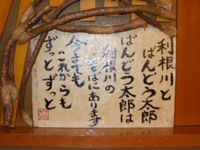 利根川と
ばんどう太郎
ばんどう太郎は
利根川の
そばにあります
今までも
これからも
ずっとずっと